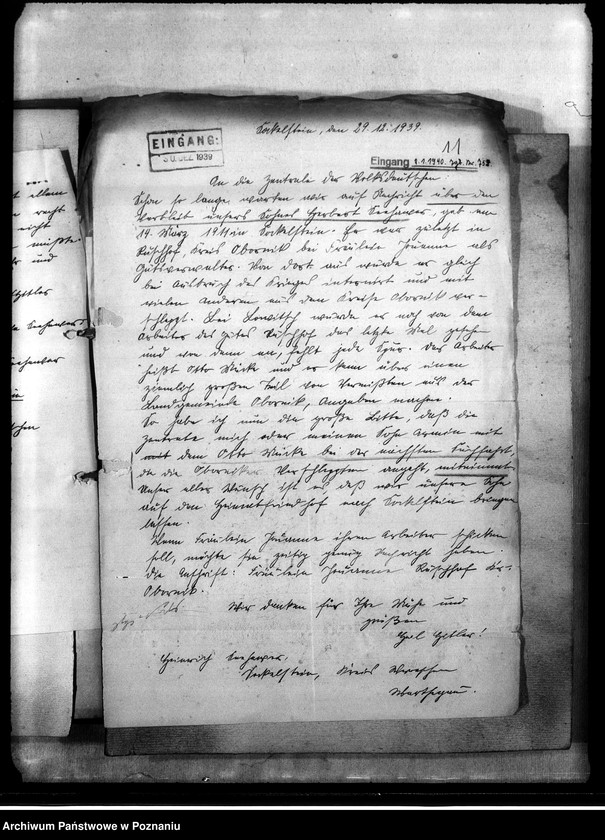 t allem
recht
nicht
müßte
und
Seehawer
Seehawer
Sockelstein, den 29.12.1939.
EINGANG:
30. DEZ. 1939
11
Eingang 1.1.1940. Tgb. Nr. 752
An die Zentrale der Volksdeutschen.
Schon so lange warten wir auf Nachricht über den
Verbleib unsers Sohnes Herbert Seehawer, geb. am
14. März 1911 in Sockelstein. Er war zuletzt in
Ruschhof, Kreis Obornik bei Fräulein Jouanne als
Gutsverwalter. Von dort aus wurde er gleich
bei Ausbruch des Krieges interniert und mit
vielen Anderen aus dem Kreise Obornik ver-
schleppt. Bei Lowitsch wurde er noch von dem
Arbeiter des Gutes Ruschhof das letzte Mal gesehn
und von dann an, fehlt jede Spur. Der Arbeiter
heißt Otto Mücke und er kann über einen
ziemlich großen Teil von Vermißten aus der
Landgemeinde Obornik, Angaben machen.
So habe ich nun die große Bitte, daß die
Zentrale mich oder meinen Sohn Armin mit
mit dem Otto Mücke bei der nächsten Suchfahrt,
die die Oborniker Verschleppten angeht, mitnimmt.
Unser aller Wunsch ist es, daß wir unsere Sohn
auf den Heimatfriedhof nach Sockelstein bringen
lassen.
Wenn Fräulein Jouanne ihren Arbeiter schicken
soll, möchte sie zeitig genug Nachricht haben.
Die Anschrift: Fräulein Jouanne Ruschhof Kr.
Obornik.
Wir danken für Ihre Mühe und
grüßen
Heil Hitler!
Heinrich Seehawer,
Sockelstein, Kreis Wreschen
Warthegau.
Archiwum Państwowe w Poznaniu